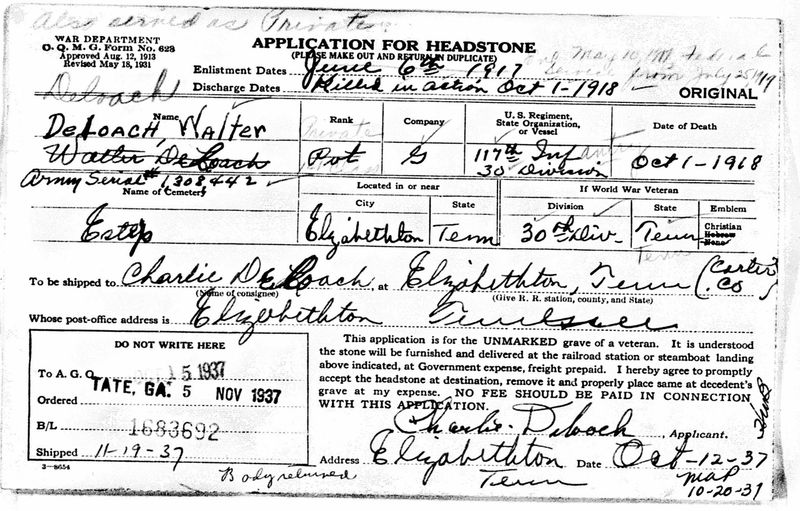 Also served as Private
WAR DEPARTMENT
O. Q. M. G. Form No. 623
Approved Aug. 12, 1913
Revised May 18, 1931
APPLICATION FOR HEADSTONE
(PLEASE MAKE OUT AND RETURN IN DUPLICATE)
Enlistment Dates June 6th 1917
May 10, 1917, Federal
service from July 25 1917
Discharge Dates Killed in action Oct 1-1918
ORIGINAL
Deloach
Name
Rank
Company
U. S. Regiment, State Organization, or Vessel
Date of Death
DeLOACH, Walter
Private
Walter DeLoach
Pvt
G
117th Infantry
30 Division
Oct 1-1918
Army Serial # 1,308,442
Name of Cemetery
Located in or near
City
State
If World War Veteran
Division
State
Emblem
Estep
Elizabethton
Tenn
30th Div.
Tenn
Christian
Hebrew
None
Tenn
To be shipped to Charlie DeLoach at Elizabethton, Tenn (Carter Co.)
(Name of consignee)
(Give R. R. station, county, and State)
Whose post-office address is Elizebethton Tennessee
DO NOT WRITE HERE
To A. G. O. 15 1937
Ordered TATE, GA. 5 NOV 1937
B/L 1683692
Shipped 11-19-37
3—8654
This application is for the UNMARKED grave of a veteran. It is understood
the stone will be furnished and delivered at the railroad station or steamboat landing
above indicated, at Government expense, freight prepaid. I hereby agree to promptly
accept the headstone at destination, remove it and properly place same at decedent's
grave at my expense. NO FEE SHOULD BE PAID IN CONNECTION
WITH THIS APPLICATION.
Charlie Deloach, Applicant.
Address Elizabethton Tenn Date Oct-12-37
Body returned
10-20-37